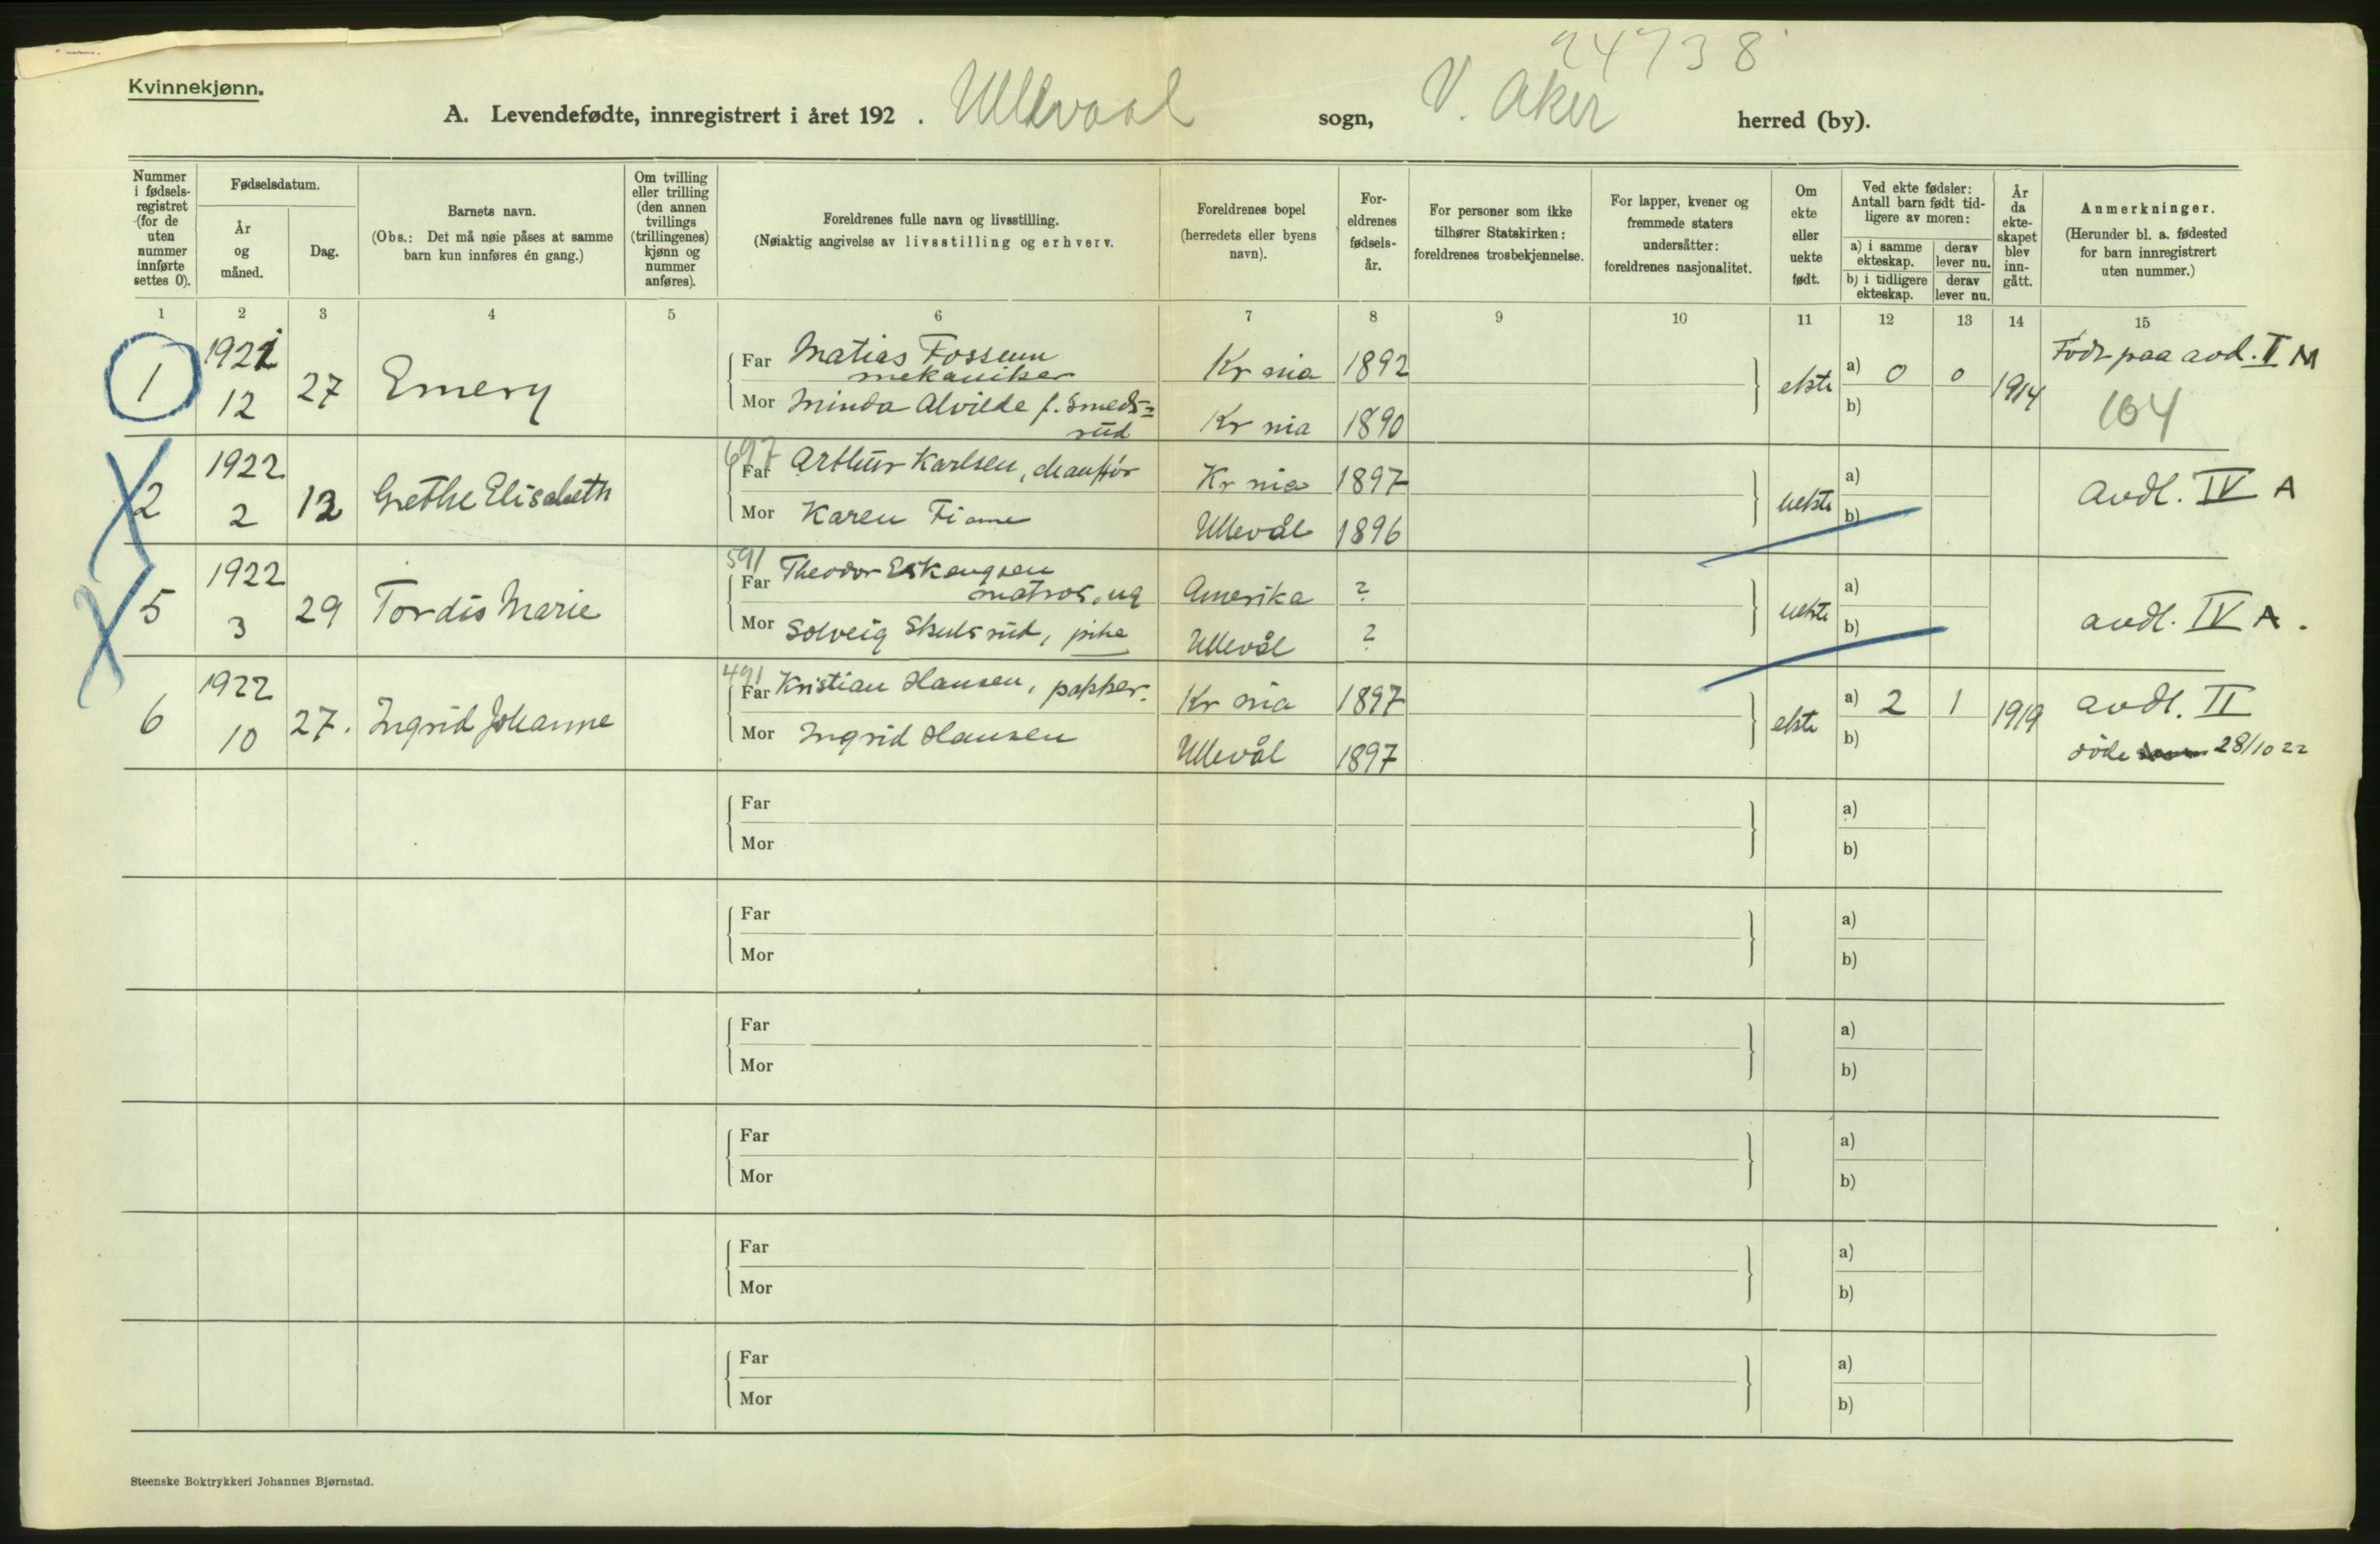 24738
Kvinnekjønn.
A. Levendefødte, innregistrert i året 192 . Ullevaal sogn, V. Aker herred (by).
Nummer i fødsels-registret (for de uten nummer innførte settes 0).
Fødselsdatum.
År og måned.
Dag.
Barnets navn.
(Obs.: Det må nøie påses at samme barn kun innføres én gang.)
Om tvilling eller trilling (den annen tvillings (trillingenes) kjønn og nummer anføres).
Foreldrenes fulle navn og livsstilling.
(Nøiaktig angivelse av livsstilling og erhverv.
Foreldrenes bopel (herredets eller byens navn).
For-eldrenes fødsels-år.
For personer som ikke tilhører Statskirken: foreldrenes trosbekjennelse.
For lapper, kvener og fremmede staters undersåtter: foreldrenes nasjonalitet.
Om ekte eller uekte født.
Ved ekte fødsler: Antall barn født tid-ligere av moren:
a) i samme ekteskap.
derav lever nu.
b) i tidligere ekteskap.
derav lever nu.
År da ekte-skapet blev inn-gått.
Anmerkninger.
(Herunder bl. a. fødested for barn innregistrert uten nummer.)
1 2 3 4 5 6 7 8 9 10 11 12 13 14 15
1 1921 12 27 Emery
Far Matias Fossum mekaniker Kr nia 1892
Mor Minda Alvilde f. Smeds=rud Kr nia 1890
ekte a) 0 0 b) 1914 Født paa avd. I M
104
2 1922 2 12 Grethe Elisabeth
697
Far Arthur Karlsen, chauffør Kr nia 1897
Mor Karen Fiame Ullevål 1896
uekte a) b) avdl. IV A
5 1922 3 29 Tordis Marie
591
Far Theodor Eskengsen matros, ug Amerika ?
Mor Solveig Skulsrud, pike Ullevål ?
uekte a) b) avdl. IV A.
6 1922 10 27. Ingrid Johanne
491
Far Kristian Hansen, pakker. Kr nia 1897
Mor Ingrid Hansen Ullevål 1897
ekte a) 2 1 b) 1919 avdl. II
døde 28/10 22
Far a)
Mor b)
Far a)
Mor b)
Far a)
Mor b)
Far a)
Mor b)
Far a)
Mor b)
Far a)
Mor b)
Steenske Boktrykkeri Johannes Bjørnstad.